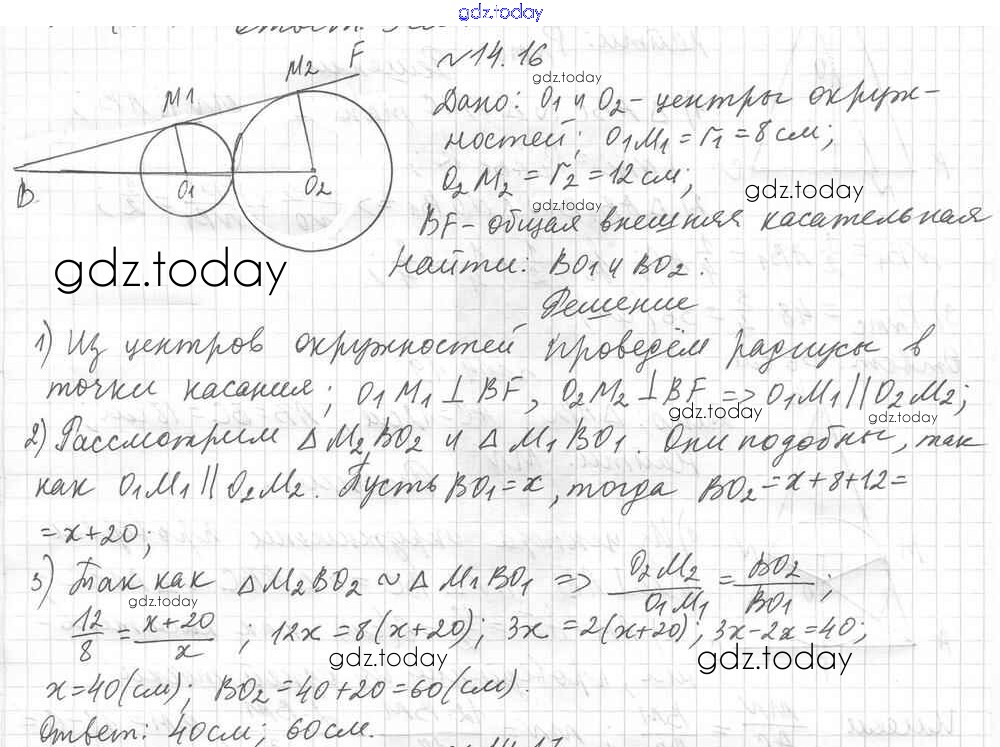 gdz.today
Ответ:
№14.16
F
M2
M1
gdz.today
Дано: O1 и O2 – центры окруж-
ностей; O1M1 = r1 = 8 см;
O2M2 = r2 = 12 см;
gdz.today
B
O1
O2
gdz.today
BF – общая внешняя касательная
gdz.today
Найти: BO1 и BO2.
Решение
1) Из центров окружностей проведём радиусы в
точки касания; O1M1 ⊥ BF, O2M2 ⊥ BF => O1M1 || O2M2;
gdz.today
gdz.today
2) Рассмотрим △ M2BO2 и △ M1BO1. Они подобны, так
как O1M1 || O2M2. Пусть BO1 = x, тогда BO2 = x + 8 + 12 =
= x + 20;
3) Так как △ M2BO2 ~ △ M1BO1 => O2M2/O1M1 = BO2/BO1;
gdz.today
12/8 = x+20/x; 12x = 8(x+20); 3x = 2(x+20); 3x – 2x = 40;
gdz.today
gdz.today
x = 40 (см); BO2 = 40 + 20 = 60 (см).
Ответ: 40 см; 60 см.